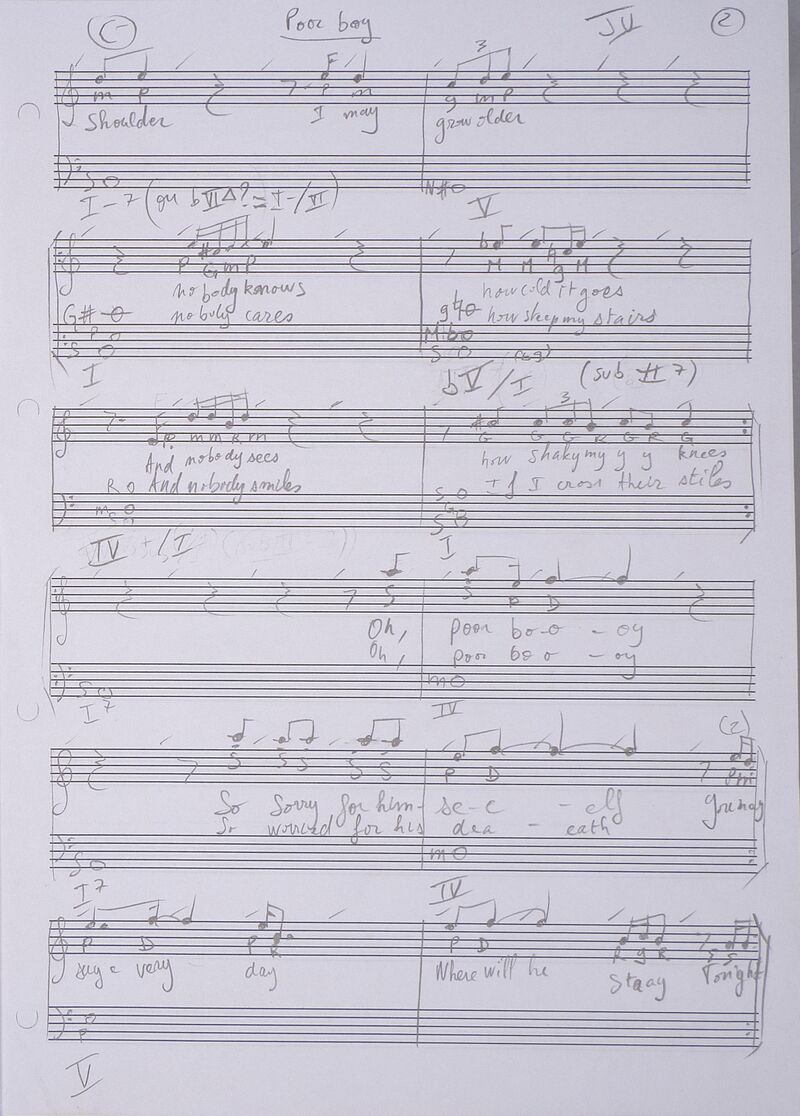 C- Poor boy IV 2
3
F
m P P m g m P
Shoulder I may grow older
S N#
I-7 (ou bVIΔ? = I-/VI) V
P G m P M M g M
nobody knows how cold it goes
G# nobody cares how steep my stairs
P M
S S
I bV/I (sub II 7)
3
P m m R m G G G R G R G
And nobody sees how shaky my y y knees
R And nobody smiles If I cross their stiles
m S S G S
IV-/I I
S S P D
Oh, poor bo-o - oy
Oh, poor bo o - oy
S m
I7 IV
(2)
S S S S S P D P m
So Sorry for him- se-e - elf You may
So worried for his dea - eath
S m
I7 IV
P D P R P D R g R S S
say e very day Where will he Staay Tonight
P
V